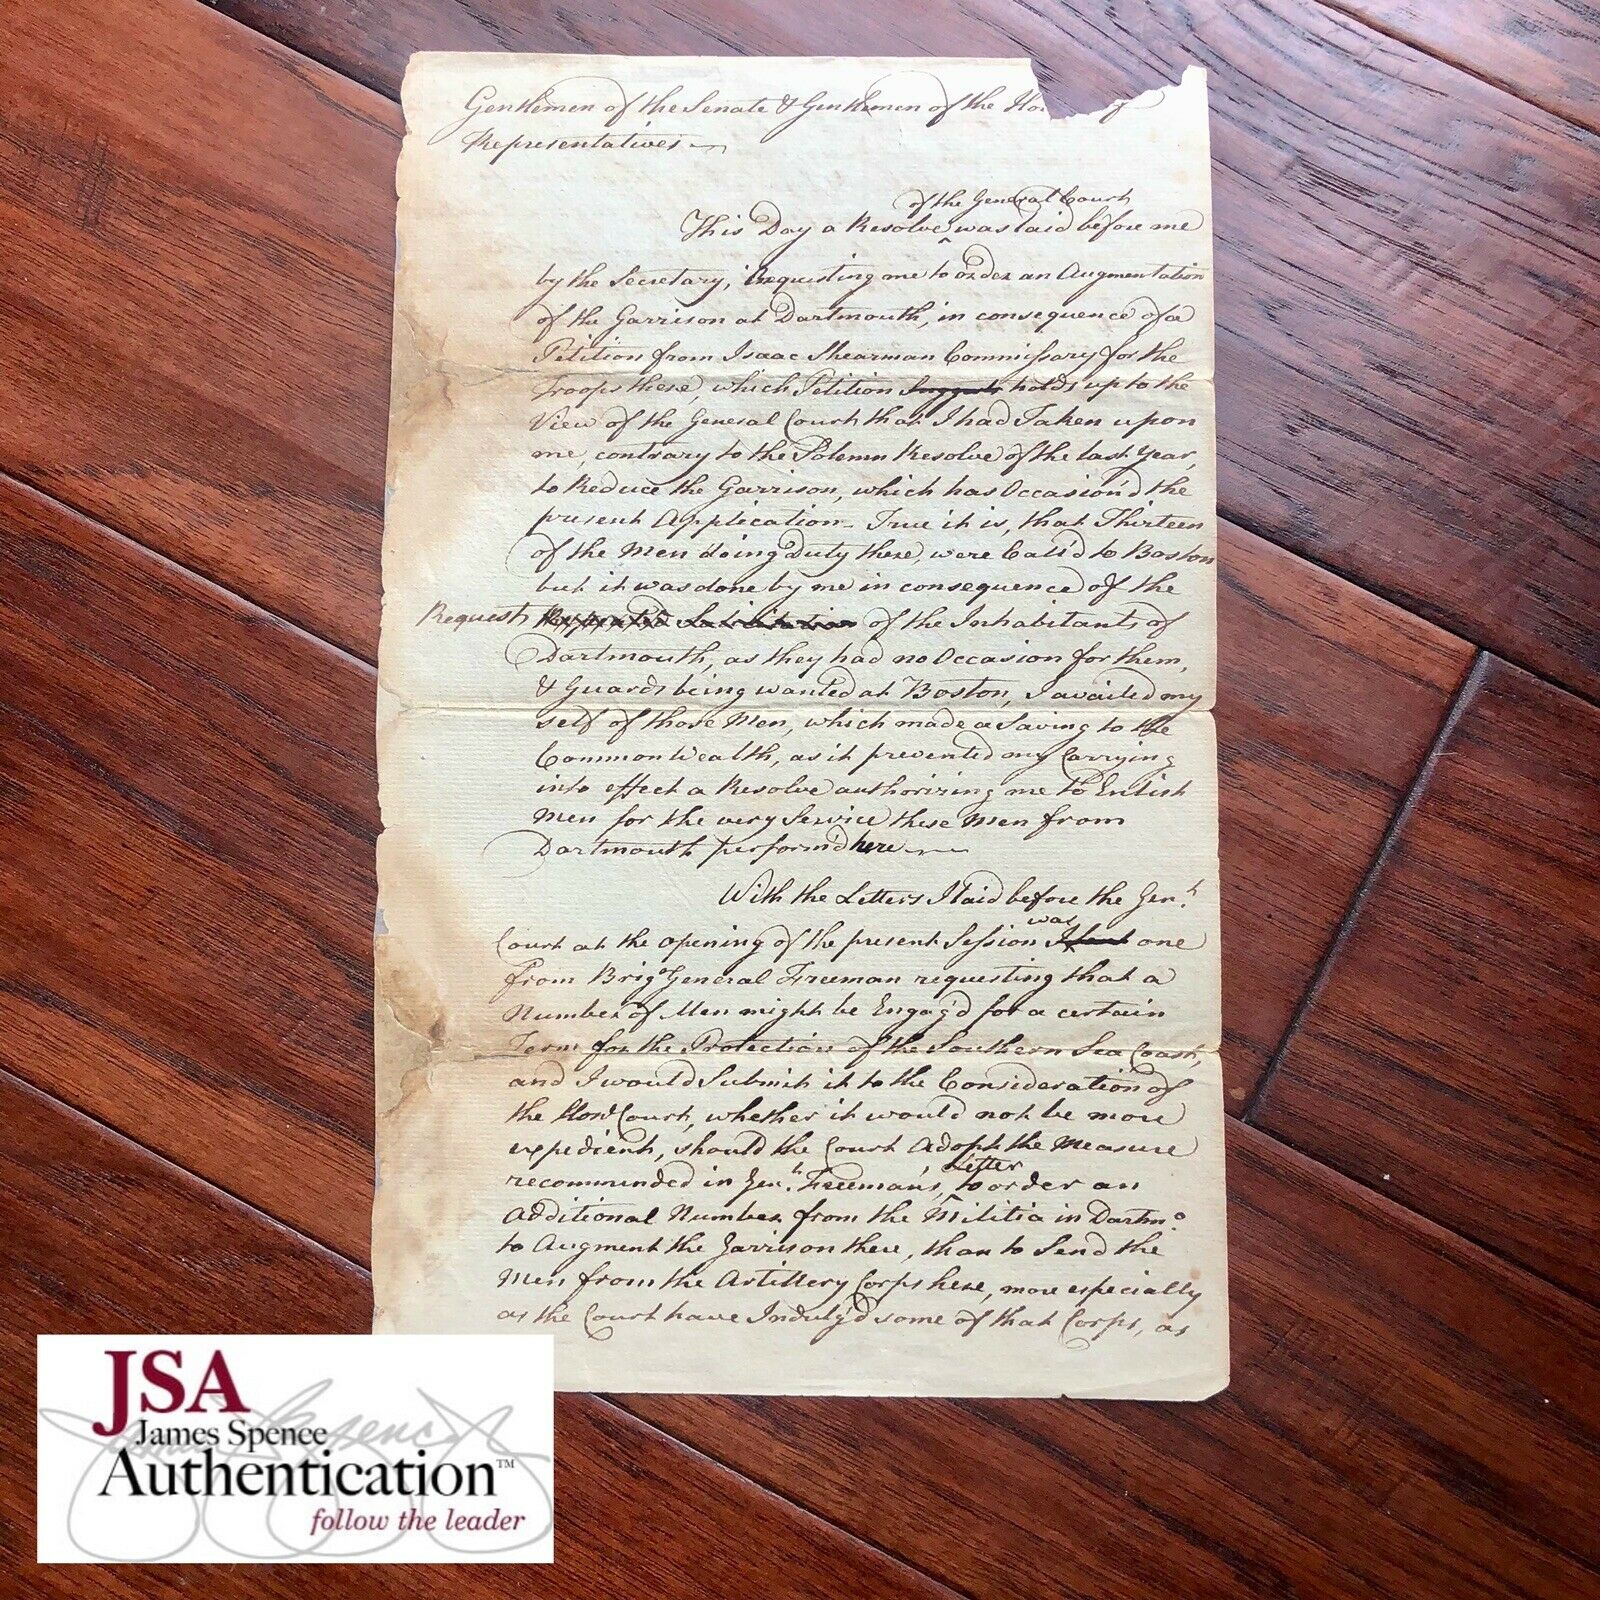 Gentlemen of the Senate & Gentlemen of the Ho of
Representatives
of the General Court
This Day a Resolve ^ was laid before me
by the Secretary, Requesting me to order an Augmentation
of the Garrison at Dartmouth, in consequence of a
Petition from Isaac Shearman Commissary for the
Troops there, which Petition holds up to the
View of the General Court that I had Taken upon
me, contrary to the Solemn Resolve of the last Year,
to Reduce the Garrison, which has Occasion'd the
present Application. True it is, that Thirteen
of the Men doing Duty there, were Call'd to Boston
but it was done by me in consequence of the
Request of the Inhabitants of
Dartmouth, as they had no Occasion for them,
& Guards being wanted at Boston, I availed my
self of those Men, which made a Saving to the
Common Wealth, as it prevented my Carrying
into effect a Resolve authorizing me to Enlist
Men for the very Service these Men from
Dartmouth perform'd here
With the Letters I laid before the Gen.l
was
Court at the opening of the present Session one
from Brig. General Freeman requesting that a
Number of Men might be Engag'd for a certain
Term for the Protection of the Southern Sea Coast,
and I would Submit it to the Consideration of
the Hon. Court, whether it would not be more
expedient, should the Court Adopt the Measure
Letter
recommended in Gen.l Freeman's, ^ to order an
Additional Number from the Militia in Dartmo.
to Augment the Garrison there, than to Send the
Men from the Artillery Corps here, more especially
as the Court have Indulg'd some of that Corps, as
JSA
James Spence
Authentication™
follow the leader